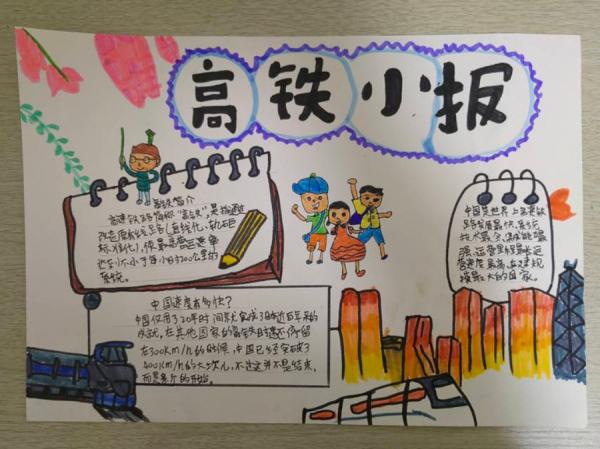 高铁小报
高铁简介
高速铁路简称"高铁",是指通过
改造原有线路(直线化、轨距
标准化),使最高营运速率
达到不小于每小时200公里的
系统。
中国是世界上高速铁
路发展最快、系统
技术最全、集成能力最
强、运营里程最长、运
营速度最高、在建规
模最大的国家。
中国速度有多快?
中国仅用了20年时间就完成了
成就。在其他国家的高铁时速还停留
在300km/h的时候,中国已经突破了
400km/h的大关儿,不过这并不是结束,
而是表个的开始。